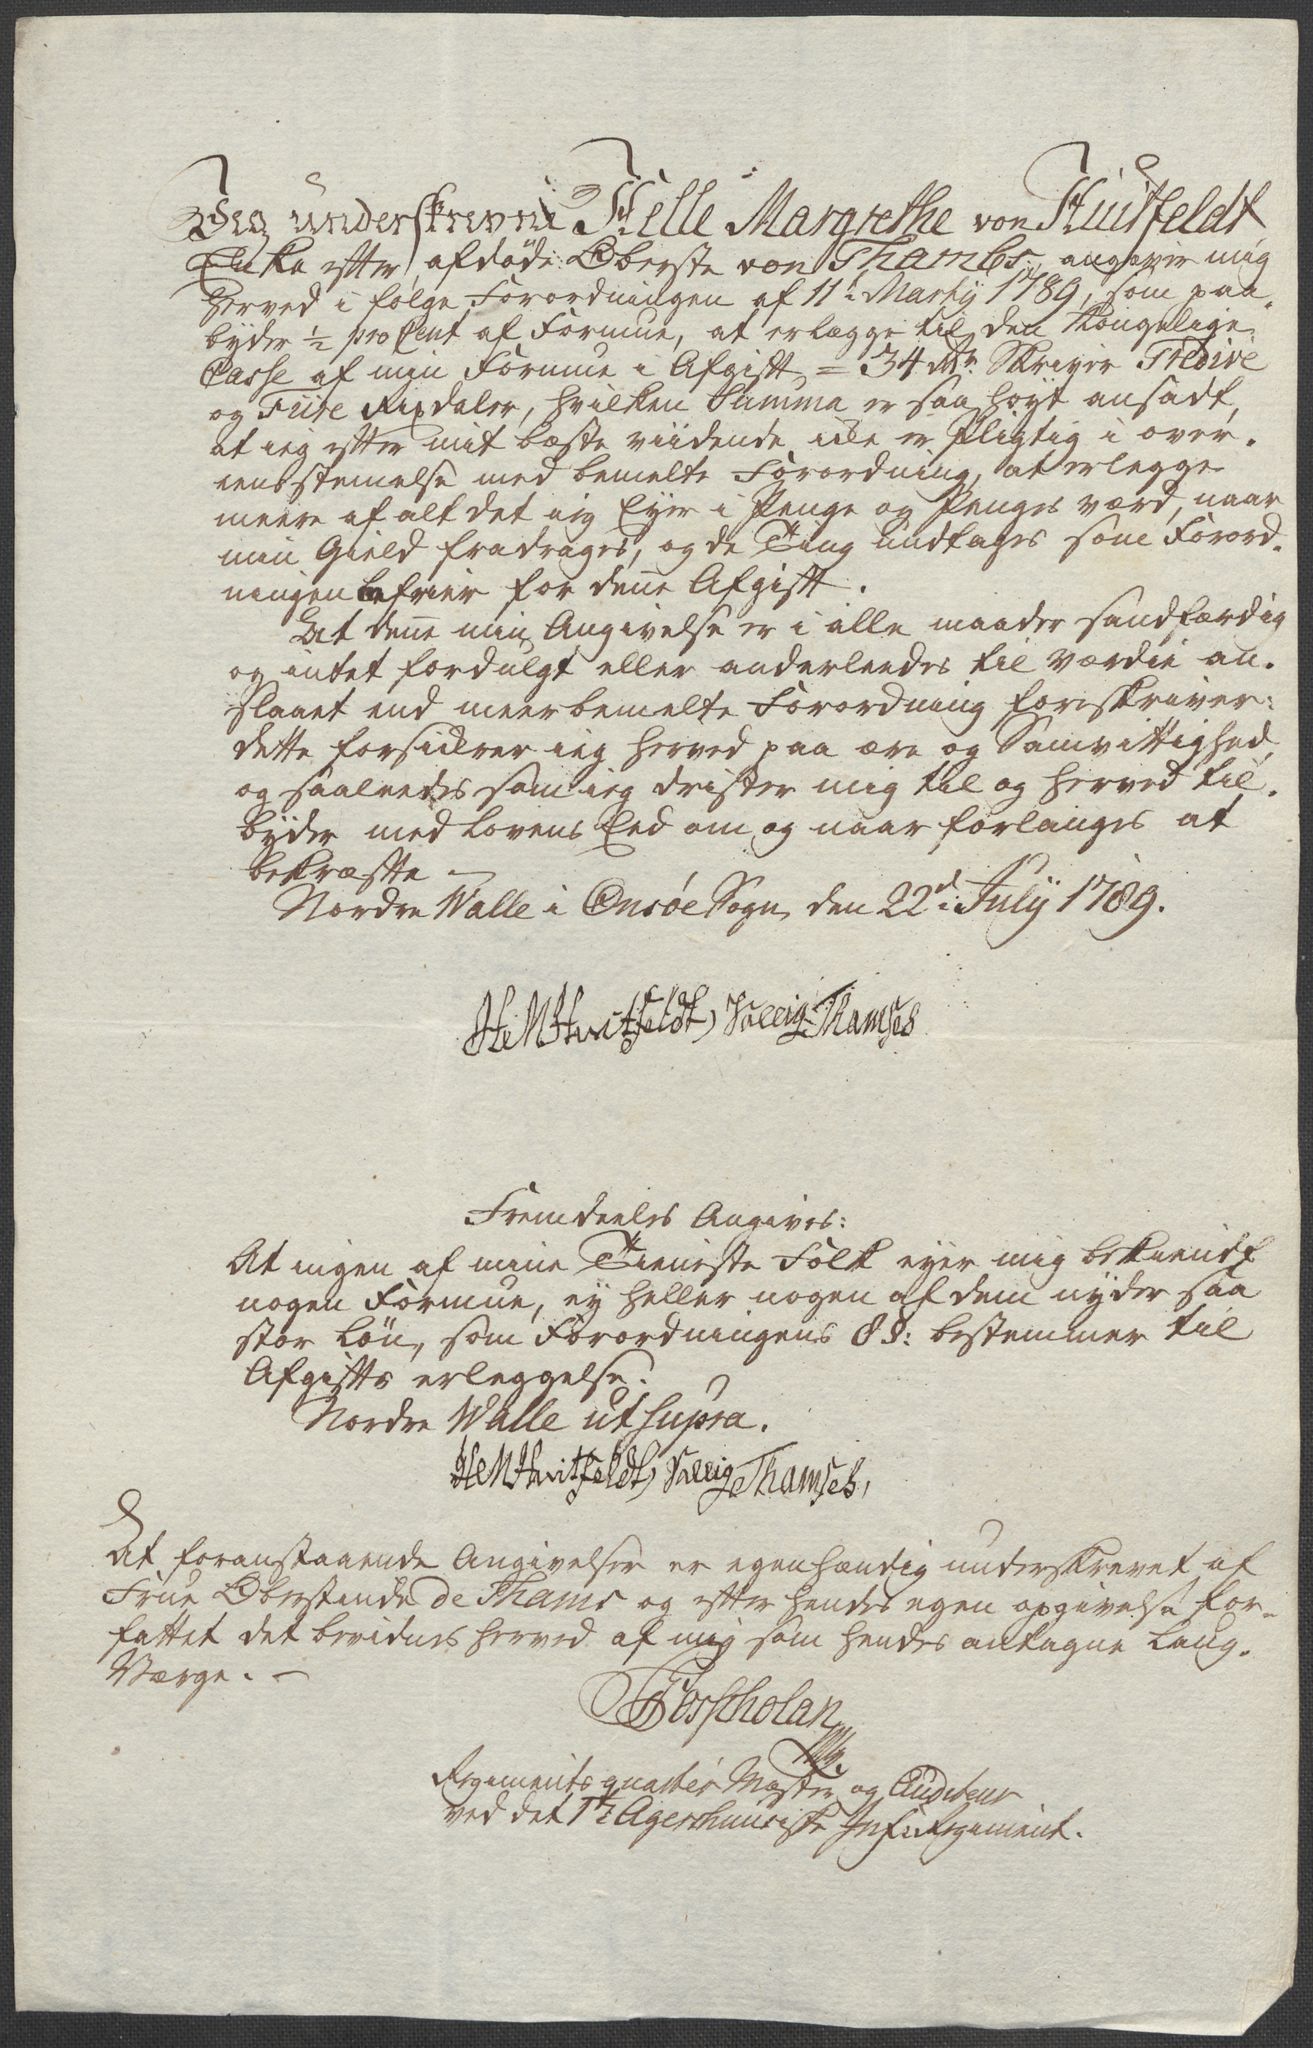 Jeg underskrevne Helle Margrethe von Huitfeldt
Enke efter afdøde Oberste von Thambs, angiver mig
herved i følge Forordningen af 11te Martij 1789, som paa-
byder ½ pro Cent af Formue, at erlægge til den Kongelige
Casse af min Formue i Afgift = 34 rdr. Skriver Tredive
og Fiire Rixdaler, hvilken Summa er saa høyt ansadt,
at ieg efter mit bæste viidende icke er pligtig i over-
eensstemelse med bemelte Forordning, at erlegge
meere af alt det ieg Eyer i Penge og Penges værd, naar
min Gield fradrages, og de Ting undtages som Forord-
ningen befrier for denne Afgift.
At denne min Angivelse er i alle maader sandfærdig
og intet fordulgt eller anderleedes til værdie an-
slaaet end meerbemelte Forordning foreskriver:
dette forsickrer ieg herved paa ære og Samvittighed,
og saaleedes som ieg drister mig til og herved til-
byder med Lovens Eed om og naar forlanges at
bekræfte —
Nordre Walle i Onsøe Sogn, den 22d July 1789.
HeMHvitfeldt, Sallig Thamses
Fremdeeles Angives:
At ingen af mine Tieneste Folk eyer mig bekiendt
nogen Formue, ey heller nogen af dem nyder saa
stor Løn, som Forordningens 8 §: bestemmer til
Afgifts erleggelse.
Nordre Walle ut supra.
HeMHvitfeldt, Sallig Thamses,
At foranstaaende Angivelser er egenhændig underskrevet af
Frue Oberstinde de Thams og efter hendes egen opgivelse for-
fattet det bevidnes herved af mig som hendes antagne Laug-
Værge. —
Forscholan
Regimentsquarteer Mæster og Auditeur
ved det 1te Agershuusiske Inf: Regiment.